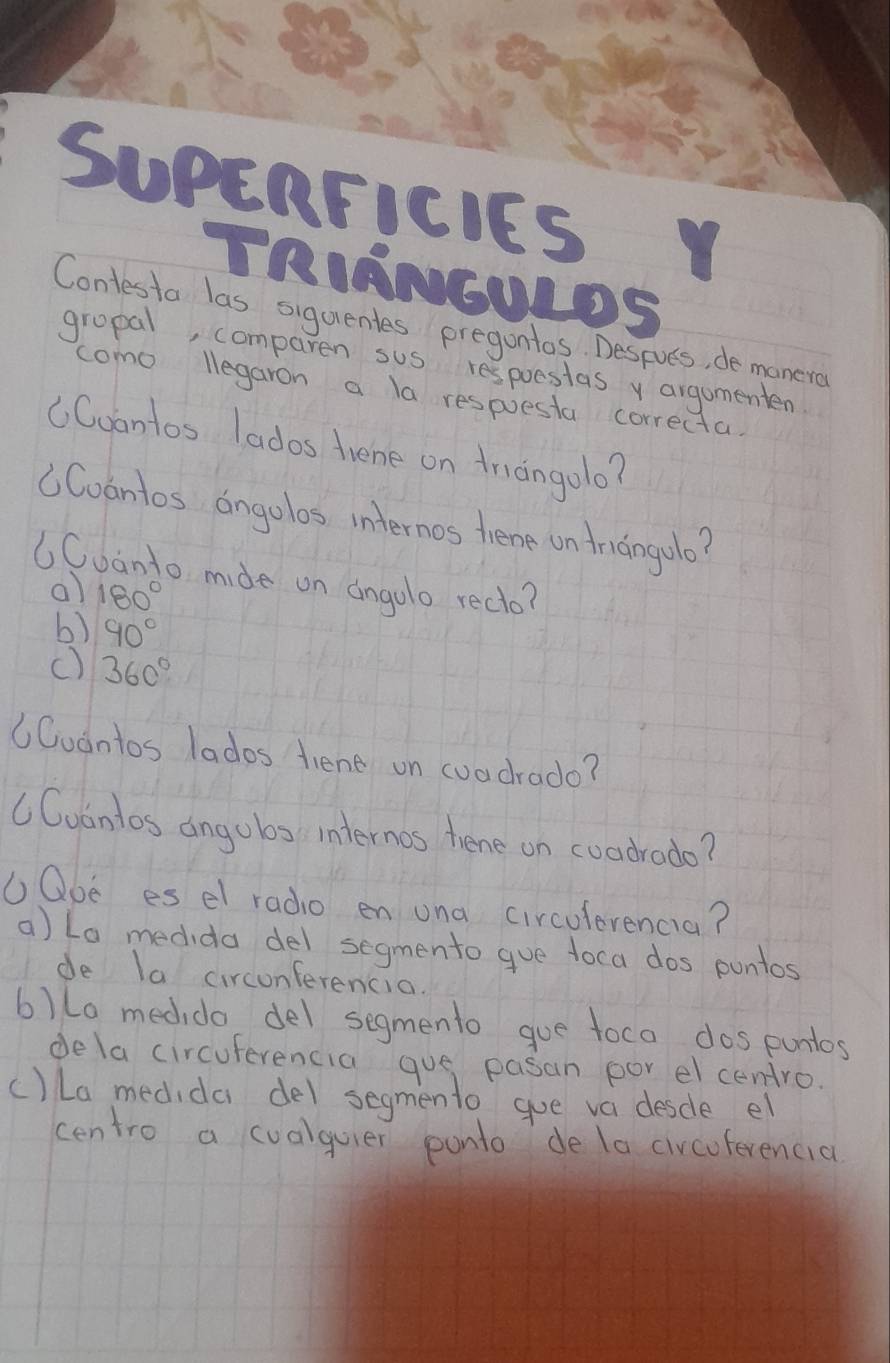 SUPERFICIES Y
TRIÁNGULOS
Contesta las siguientes preguntas. Después, de manera
grupal, comparen sus respuestas y argumenten
como llegaron a la respuesta correcta.
¿Cuántos lados tiene un triángulo?
¿Cuántos ángulos internos tiene un triángulo?
¿Cuánto mide un ángulo recto?
a) 180°
b) 90°
c) 360°
¿Cuántos lados tiene un cuadrado?
¿Cuántos ángulos internos tiene un cuadrado?
¿Qué es el radio en una circuferencia?
a) La medida del segmento que toca dos puntos
de la circunferencia.
b) La medida del segmento que toca dos puntos
de la circuferencia que pasan por el centro.
c) La medida del segmento que va desde el
centro a cualquier punto de la circuferencia